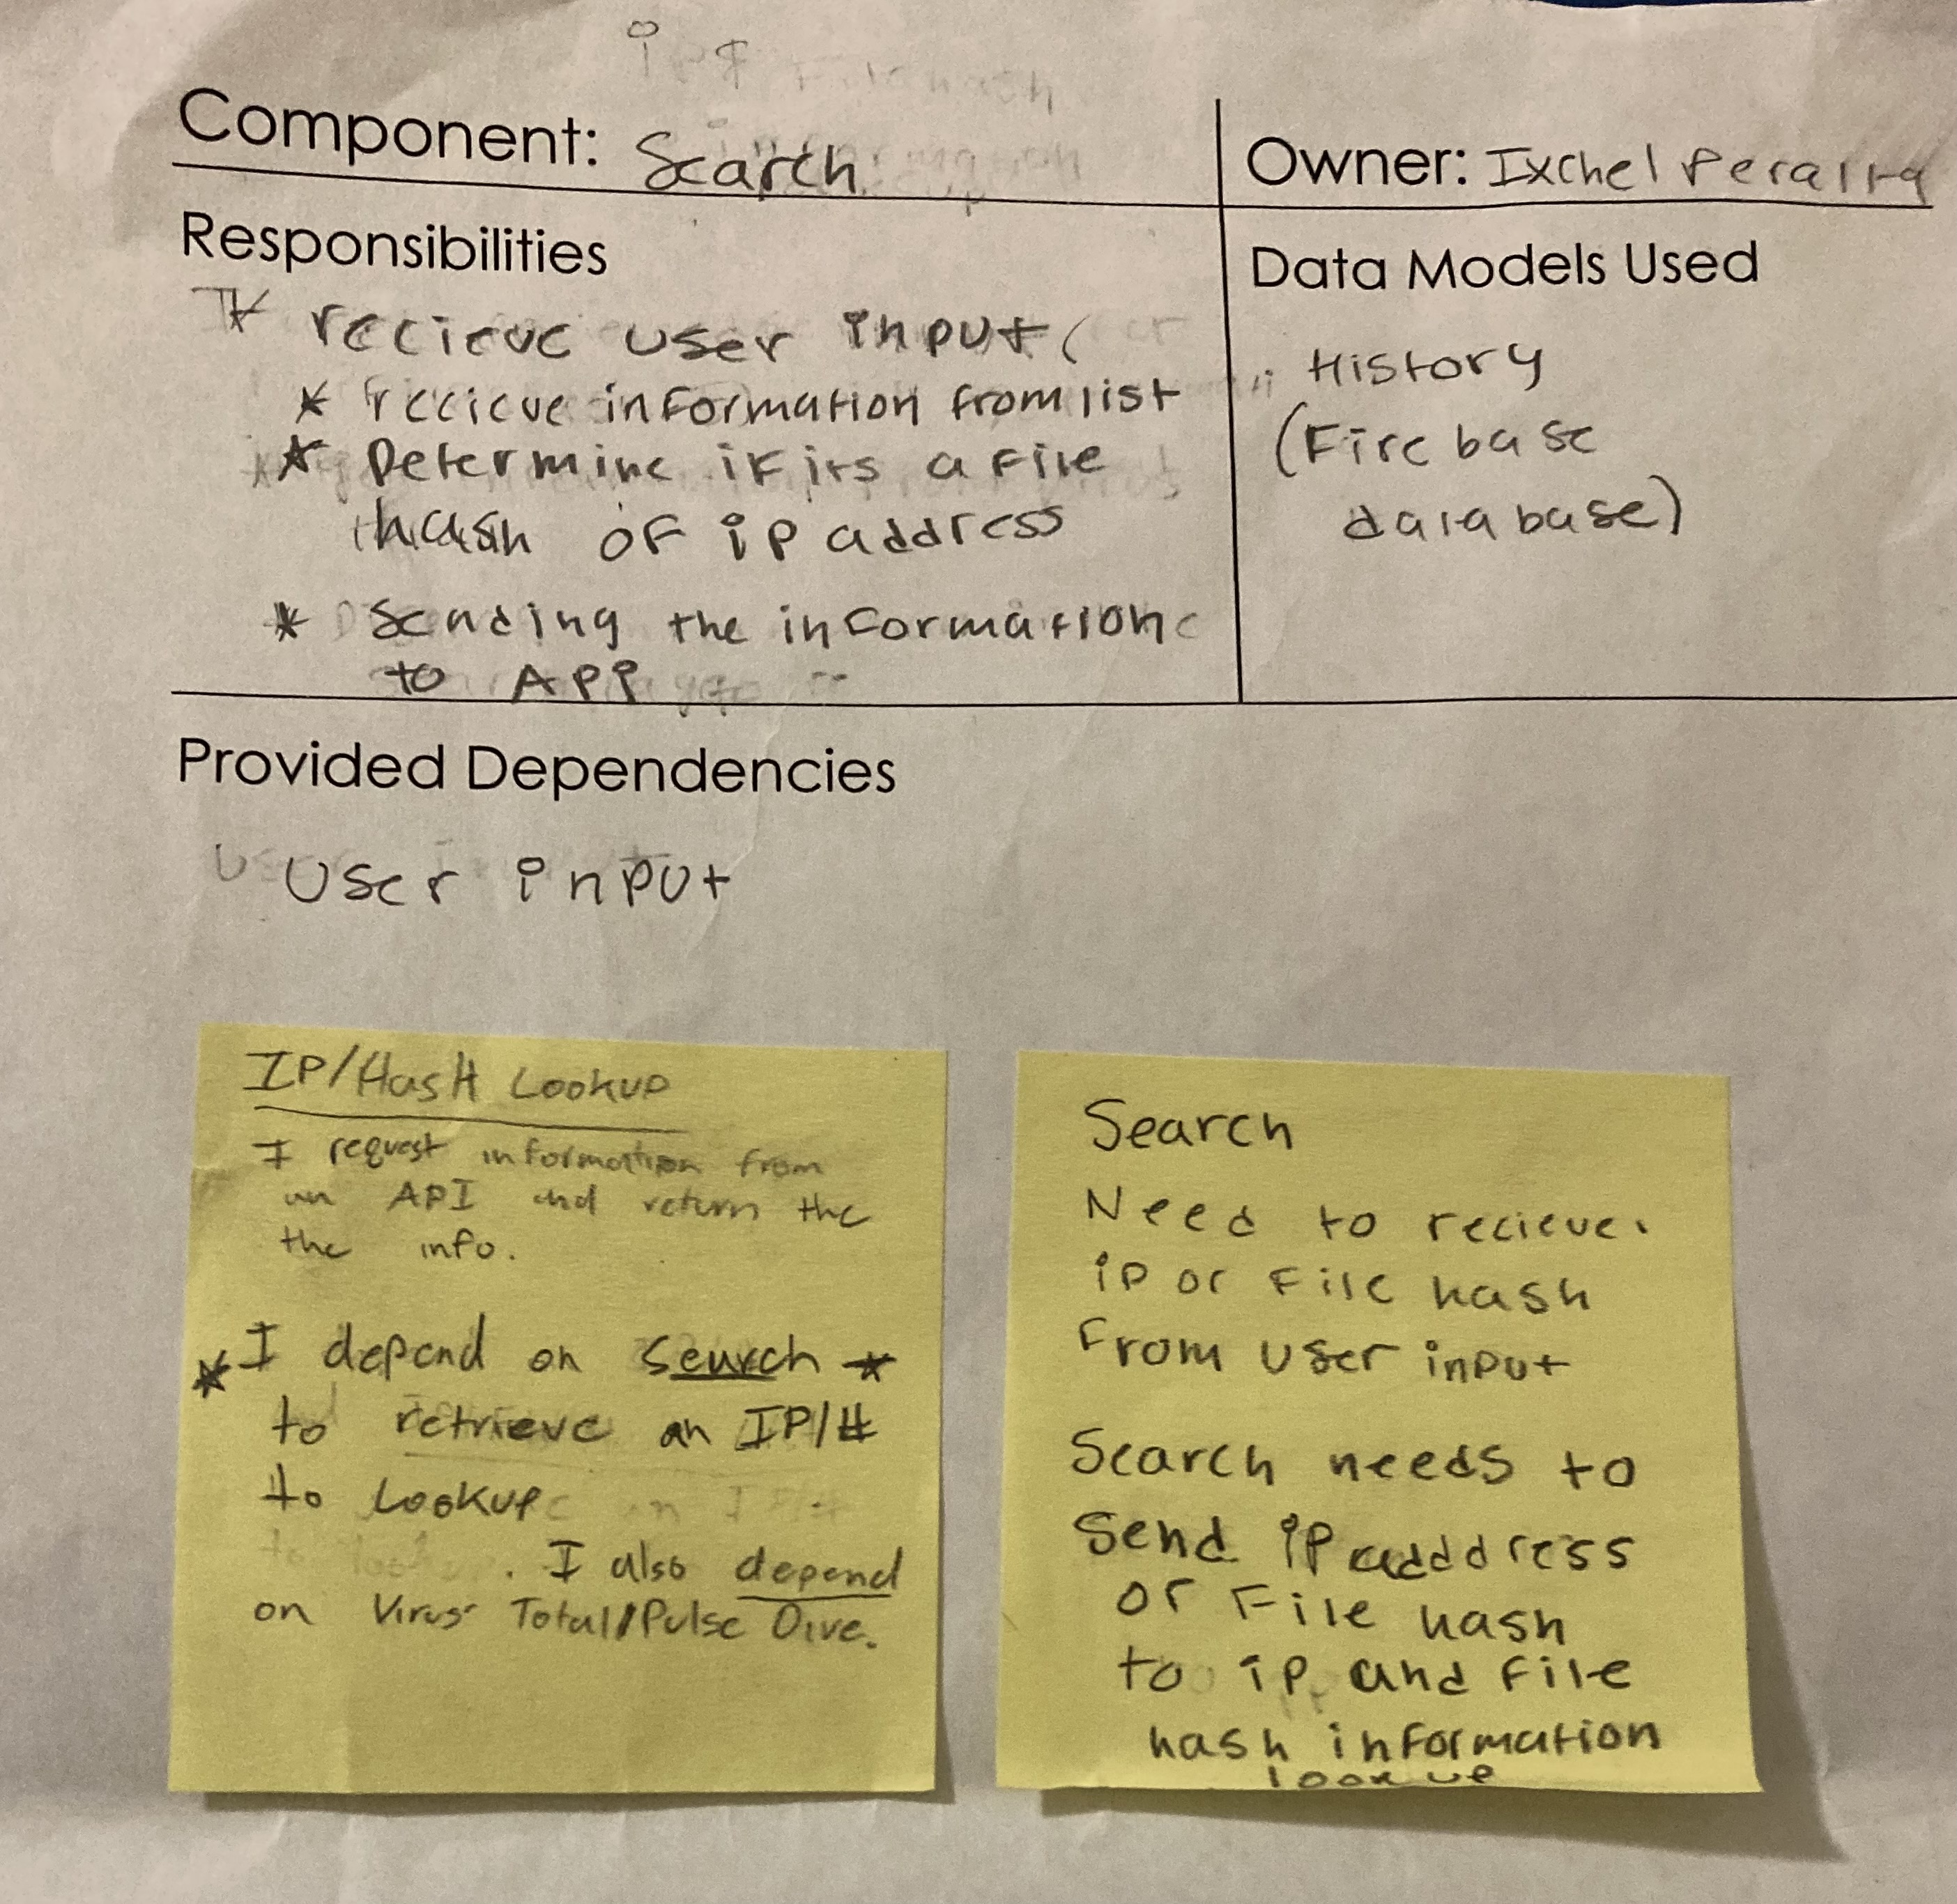 Component: Search
Owner: Ixchel Peralta
Responsibilities
* recieve user input (
* recieve information from list
* Determine if its a file
hash of ip address
* Sending the information
to API
Data Models Used
History
(Firebase
database)
Provided Dependencies
User input
IP/Hash Lookup
I request information from
an API and return the
the info.
* I depend on Search *
to retrieve an IP/#
to Lookup
. I also depend
on Virus Total/Pulse Dive.
Search
Need to recieve
ip or File hash
From user input
Search needs to
Send ip adddress
or File hash
to ip and file
hash information
look up